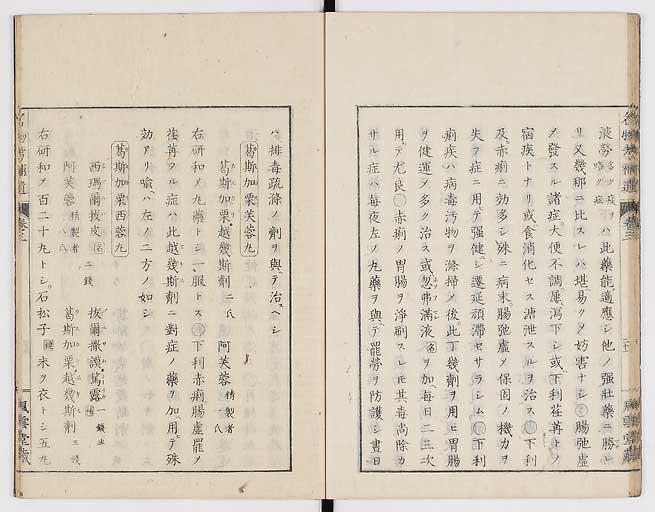 淡勞多ク疾ヲハ此藥能適應シ他ノ强壯藥ニ勝レ
リ又幾那ニ比スレハ堪易クメ妨害ナシ 腸弛虛
ノ發スル諸症大便不調屢瀉下シ或下利荏苒トメ
宿疾トナリ或食消化セス溏泄スルヲ治ス 下利
及赤痢ニ効多シ殊ニ病末腸弛虛メ保固ノ機力ヲ
失フ症ニ用テ强健シ遷延頑滯セサラシム 下利
痢疾ハ病毒汚物ヲ滌掃メ後此丁幾劑ヲ用ヒ胃腸
ヲ健運メ多ク治ス或忽弗滿液 ヲ加每日二三次
用テ尤良 赤痢ノ胃腸ヲ淨刷スレ𪜈其毒尚除カ
サル症ハ每夜左ノ丸藥ヲ與テ罷勞ヲ防護シ晝日
ハ排毒疏滌ノ劑ヲ與テ治スヘシ
葛斯加栗芙蓉丸
葛斯加栗越幾斯劑二氏 阿芙蓉精製者一氏
右研和メ九藥トシ一服トス 下利赤痢腸虛罷メ
荏苒タル症ハ此越幾斯劑ニ對症ノ藥ヲ加用テ殊
効アリ喩ハ左ノ二方ノ如シ
葛斯加栗西蓉丸
西瑪爾拔皮 二錢 拔爾撒謨篤露一錢半
阿芙蓉精製者八氏 葛斯加栗越幾斯劑三錢
右研和メ百二十九トシ石松子 末ヲ衣トシ五九
卷之三
風雲堂藏